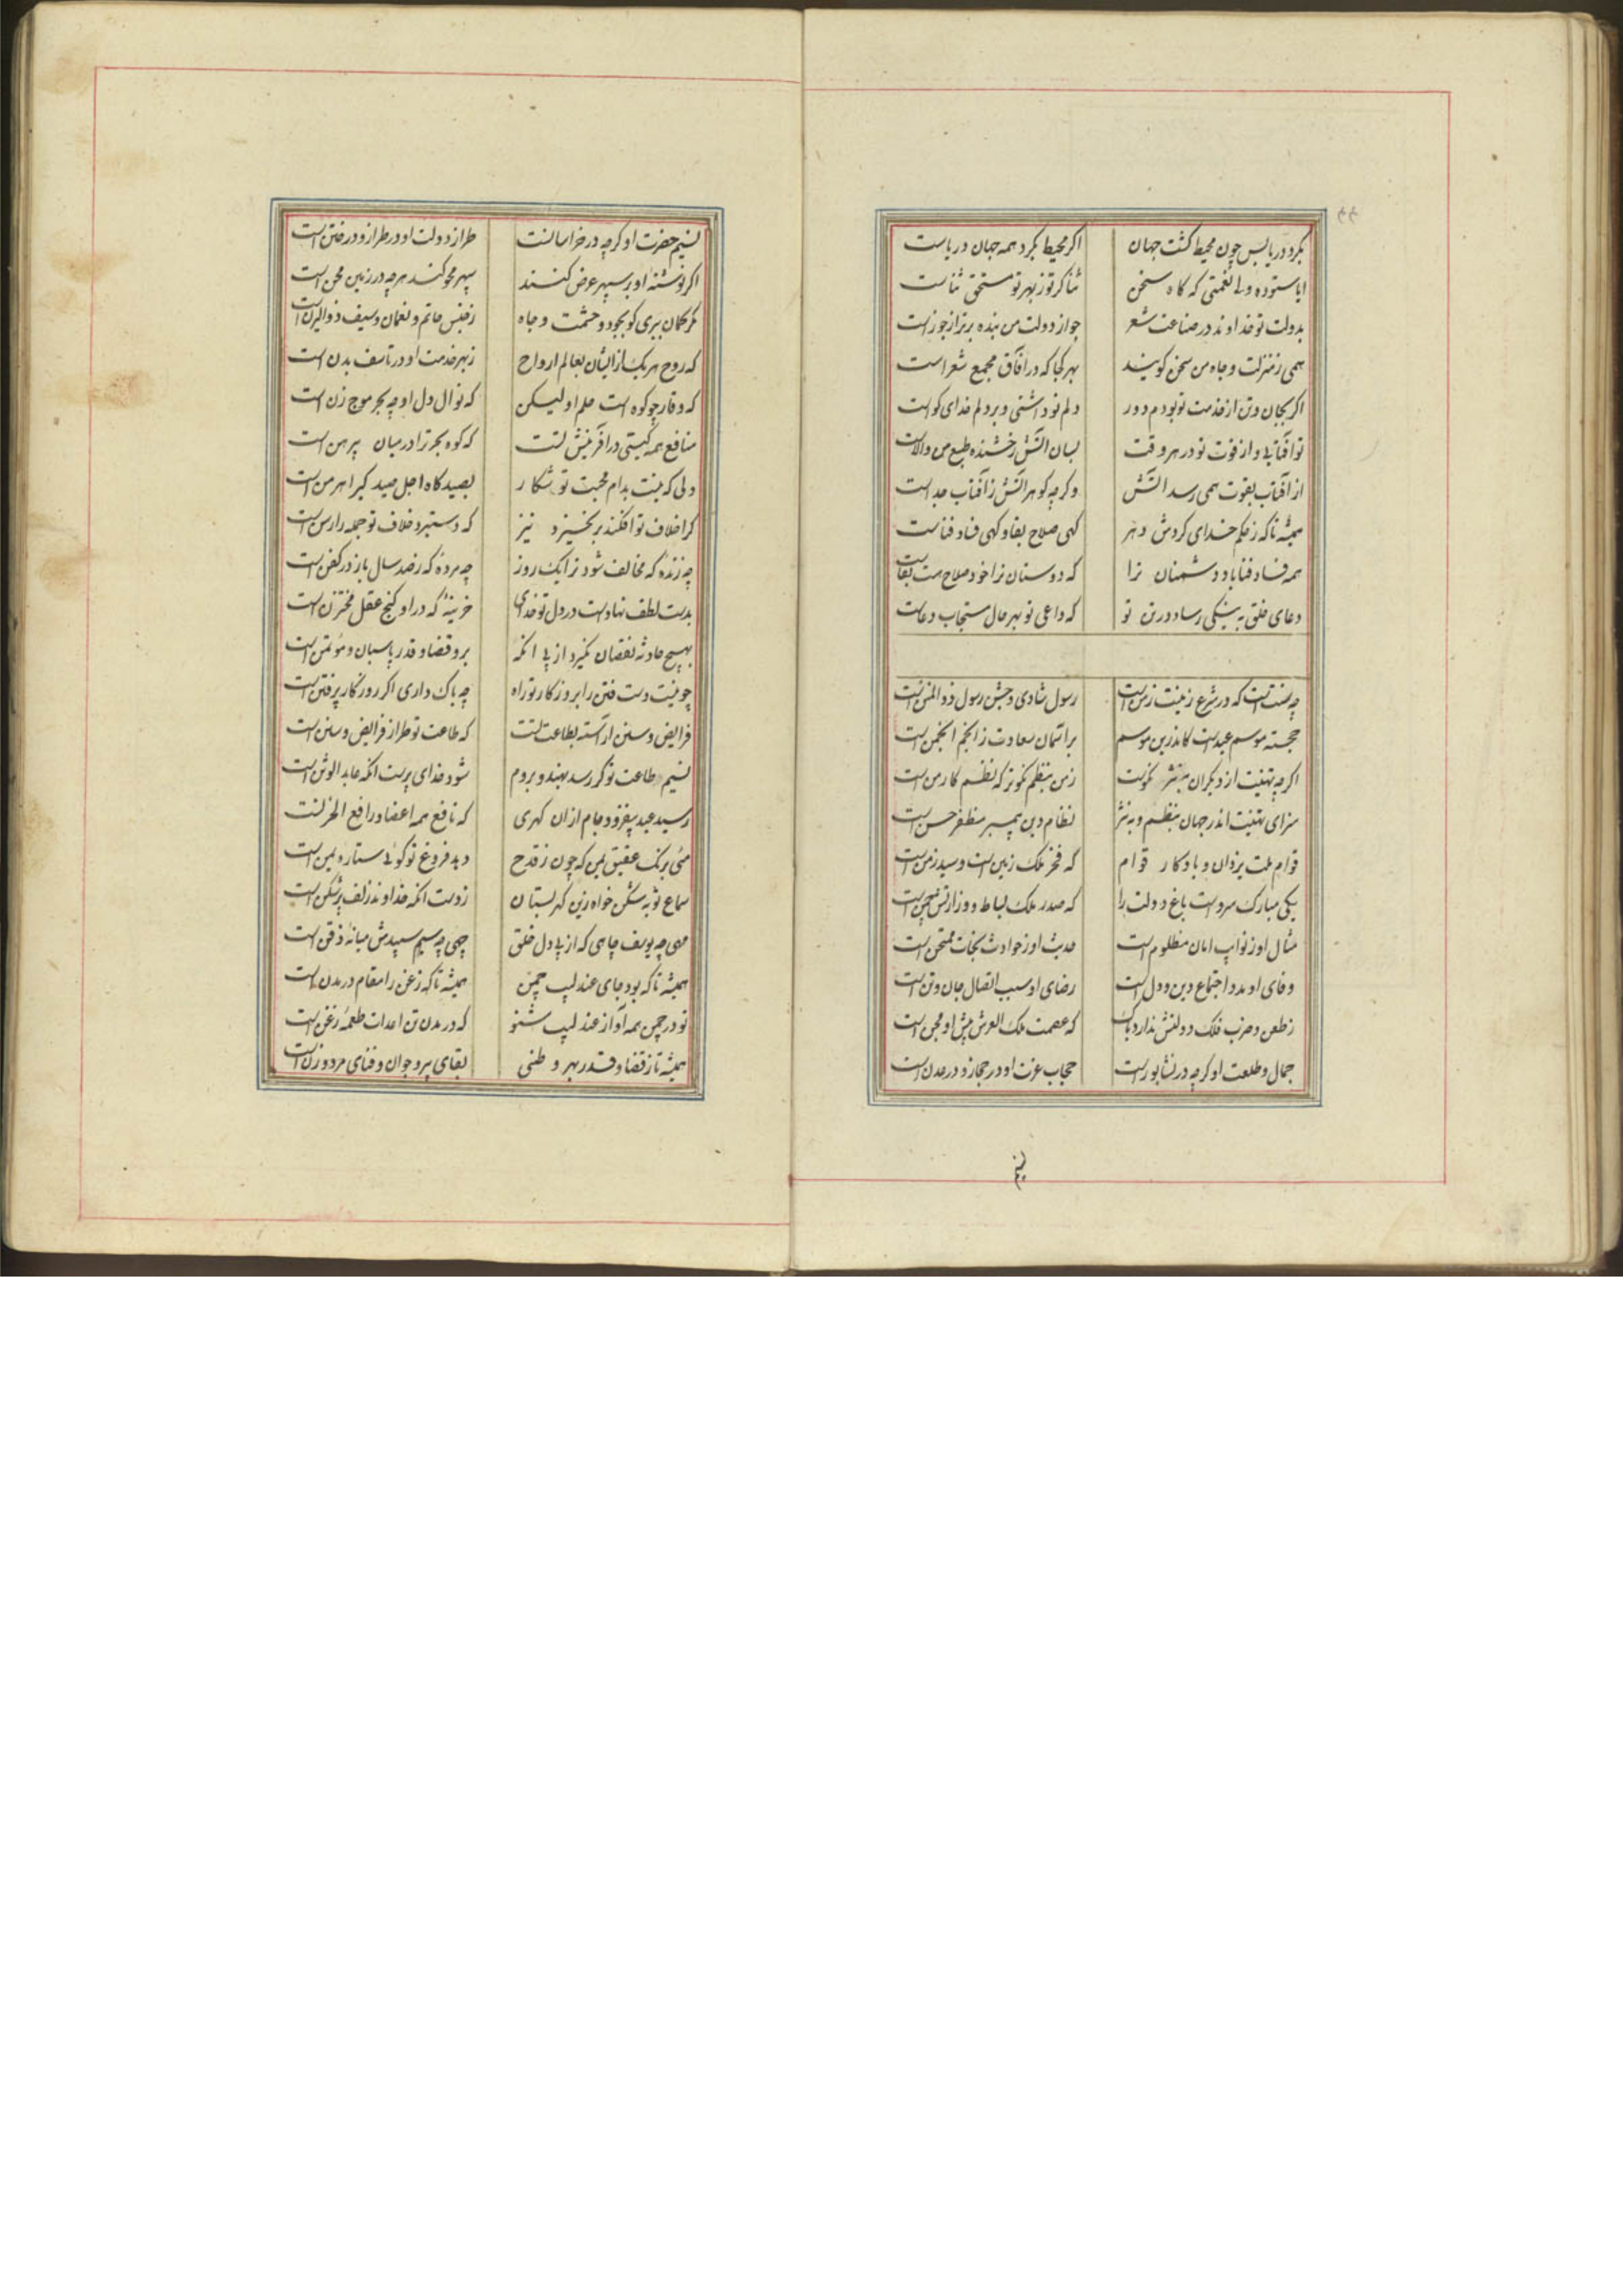 بکرد دریا بس چون محیط کشت جهان اکر محیط بکرد همه جهان دریاست
ایا ستوده ولی نعمتی که کاه سخن ثنا کر تو ز بهر تو مستحق ثناست
بدولت تو خداوند در صناعت شعر جواز دولت من بنده برتر از جوزاست
همی ز منزلت و جاه من سخن کویند بهر کجا که در آفاق مجمع شعراست
اکر بجان و تن از خدمت تو بودم دور دلم تو داشتی و بر دلم خدای کواست
تو آفتابی و از قوت تو در هر وقت بسان آتش رخشنده طبع من والاست
از آفتاب بقوت همی رسد آتش وکرچه کوهر آتش ز آفتاب جداست
همیشه تا که ز حکم خدای کردش دهر کهی صلاح بقا و کهی فساد فناست
همه فساد فنا باد دشمنان ترا که دوستان ترا خود صلاح هست بقاست
دعای خلق به نیکی رساد در تن تو که داعی تو بهر حال مستجاب دعاست
چه سنت است که در شرع زینت زمن است رسول شادی و جشن رسول ذو المنن است
خجسته موسم عیدست کاندرین موسم بر آسمان سعادت ز انجم انجمن است
اکرچه تهنیت از دیکران به نثر نکوست ز من بنظم نکوتر که نظم کار من است
سزای تهنیت اندر جهان بنظم و به نثر نظام دین پیمبر مظفر حسن است
قوام ملت یزدان و یادکار قوام که فخر ملک زمین است و سید زمن است
یکی مبارک سروست باغ دولت را که صدر ملک بساط و وزارتش چمن است
مثال او ز نوایب امان مظلوم است حدیث او ز حوادث نجات ممتحن است
وفای او مدد اجتماع دین و دل است رضای او سبب اتصال جان و تن است
ز طعن و ضرب فلک دولتش ندارد باک که عصمت ملک العرش پیش او مجن است
جمال و طلعت او کرچه در نشابورست حجاب عزت او در حجاز و در عدن است
نسیم
نسیم حضرت او کرچه در خراسانست طراز دولت او در طراز و در ختن است
اکر نوشته او بر سپهر عرض کنند سپهر محو کند هرچه در زمین محن است
مکر کمان بری کو بجود و حشمت و جاه ز جنس حاتم و نعمان و سیف ذوالیزن است
که روح هر یک از ایشان بعالم ارواح ز بهر خدمت او در تاسف بدن است
که وقار چو کوه است حلم او لیکن که نوال دل او چو بحر موج زن است
منافع همه کیتی در آفرینش تست که کوه بحر ترا در میان پیرهن است
دلی که نیست بدام محبت تو شکار بصیدکاه اجل صید کیر اهرمن است
کرا خلاف تو افکند بر نخیزد نیز که دستبرد خلاف تو حمله را رسن است
چه زنده که مخالف شود ترا یک روز چه مرده که ز صد سال باز در کفن است
بدست لطف نهادست در دل تو خدای خزینه که در او کنج عقل مختزن است
بهیچ حادثه نقصان نکیرد از پی آنکه برو قضا و قدر پاسبان و مؤتمن است
چو نیست دست فتن را بروزکار تو راه چه باک داری اکر روزکار پر فتن است
فرایض و سنن آراسته بطاعت تست که طاعت تو طراز فرایض و سنن است
نسیم طاعت تو کر رسد بهند و بروم شود خدای پرست آنکه عابد الوثن است
رسید عید بیفزود جام ازان کهری که نافع همه اعضا و رافع الحزنست
مئی برنک عقیق یمن که چون ز قدح دهد فروغ تو کوئی ستاره یمن است
سماع نوبه شکن خواه زین کهر بستان ز دست آنکه خداوند زلف پر شکن است
مهی چه یوسف چاهی که از پی دل خلق چهی چه سیم سپیدش میانه ذقن است
همیشه تا که بود جای عندلیب چمن همیشه تا که زغن را مقام در دمن است
تو در چمن همه آواز عندلیب شنو که در دمن تن اعدات طعمهٔ زغن است
همیشه تا ز قضا و قدر بهر وطنی بقای پیر و جوان و فنای مرد و زن است